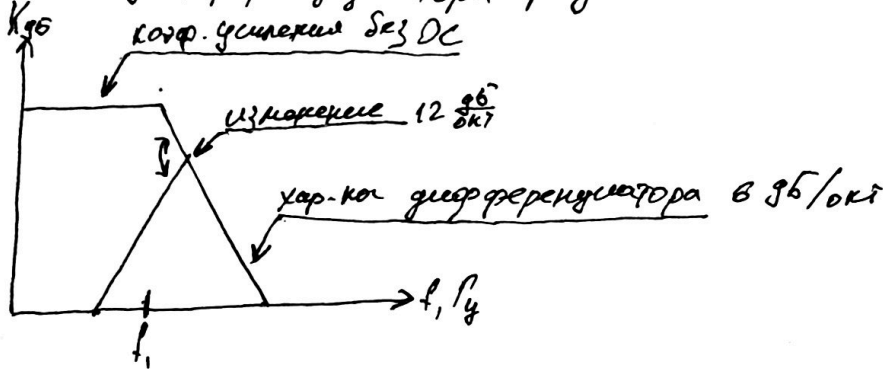 K дБ
коэф. усиления без ОС
изменение 12 дБ/окт
хар-ка дифференциатора 6 дБ/окт
f, Гц
f₁